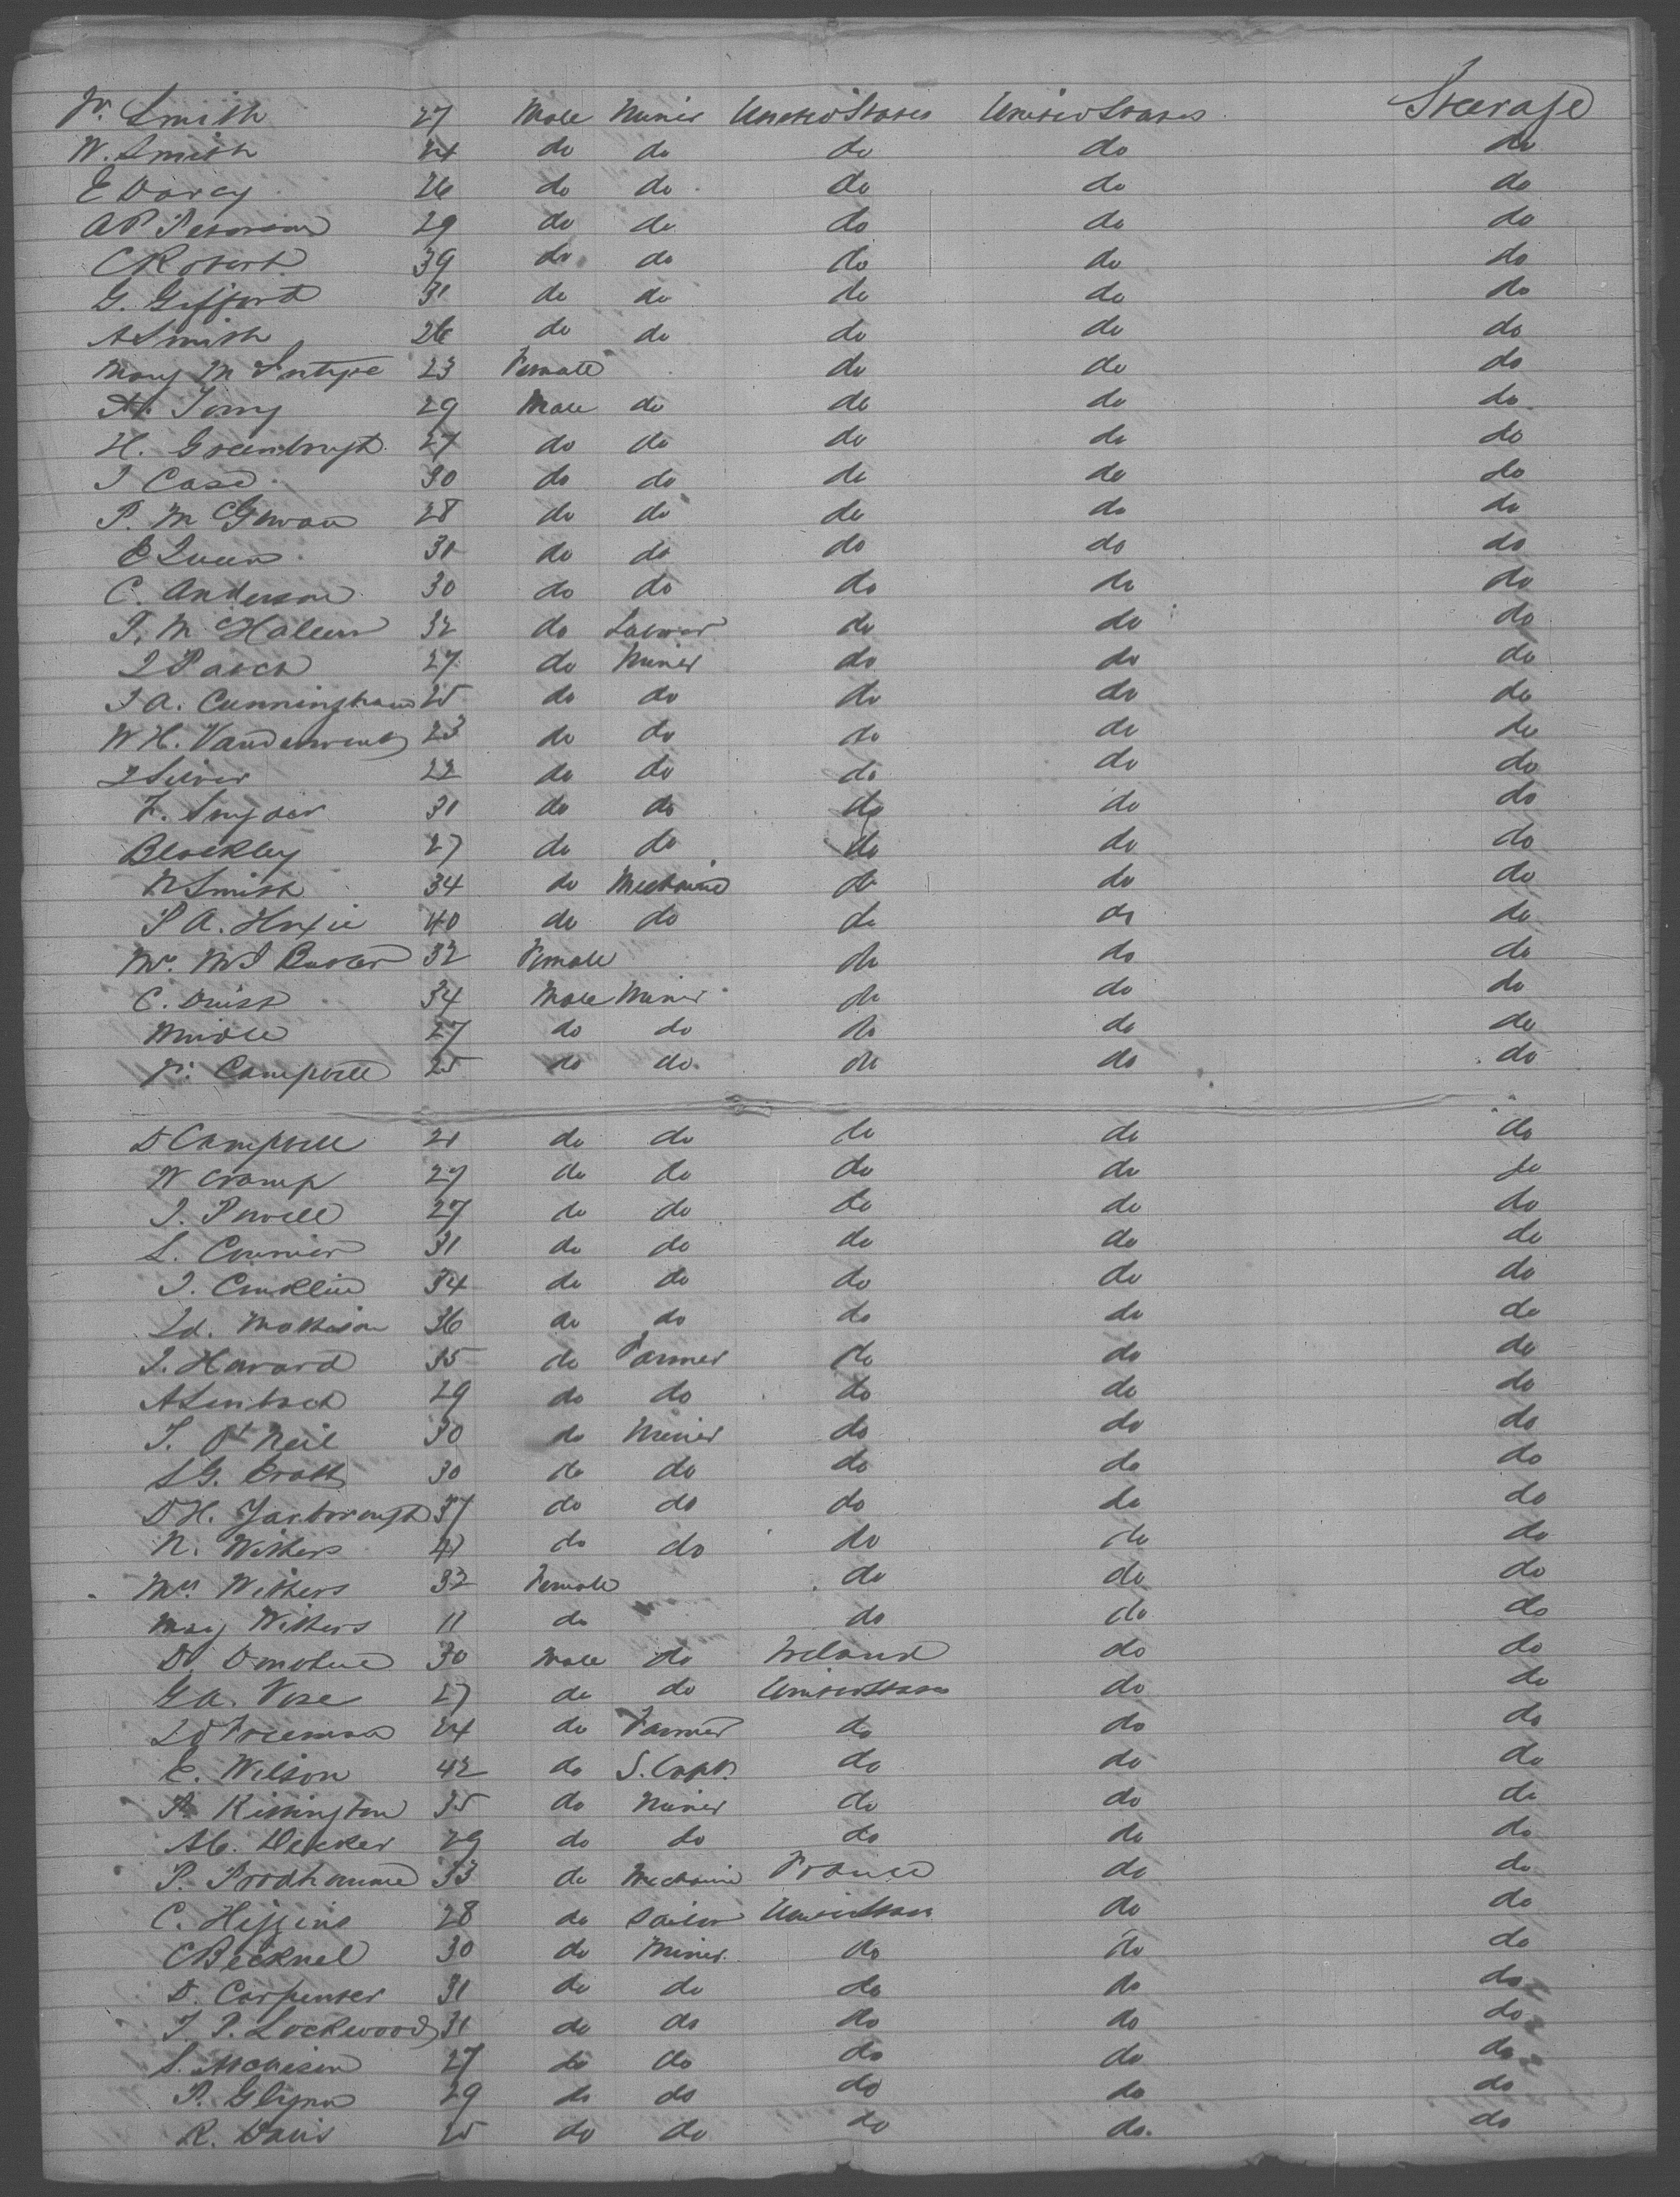 Jr. Smith 27 Male Miner United States United States Steerage
W. Smith 24 do do do do do
E Darcy 26 do do do do do
A P Peterson 29 do do do do do
C Robert 39 do do do do do
G. Gifford 31 do do do do do
A Smith 26 do do do do do
Mary McIntyre 23 Female do do do
Torry 29 Male do do do do
H. Greenbrugh 27 do do do do do
J Case 30 do do do do do
P. McGowan 28 do do do do do
E Queen 31 do do do do do
C. Anderson 30 do do do do do
T. McHaleen 32 do Laborer do do do
27 do Miner do do do
J A. Cunningham 25 do do do do do
W H. Vanderwent 23 do do do do do
J Silver 22 do do do do do
F. Snyder 31 do do do do do
Blockley 27 do do do do do
N Smith 34 do Mechanic do do do
P A. Hoxie 40 do do do do do
Mrs. M J Burter 32 Female do do do
C. Driss 34 Male Miner do do do
Mindle 27 do do do do do
Jr. Campbell 25 do do do do do
D Campbell 21 do do do do do
W Cramp 27 do do do do do
J. Powell 27 do do do do do
L. Connier 31 do do do do do
J. Conklin 34 do do do do do
Ed. Mattison 36 do do do do do
J. Havard 35 do Farmer do do do
A Limbach 29 do do do do do
T. O'Neil 30 do Miner do do do
S G. Cratt 30 do do do do do
D H. Yarborough 37 do do do do do
N. Withers 41 do do do do do
Mrs Withers 32 Female do do do
Mary Withers 11 do do do do
D. Donohue 30 Male do Ireland do do
G A. Vose 27 do do United States do do
L D Freeman 24 do Farmer do do do
E. Wilson 42 do S. Capt. do do do
Kissington 35 do Miner do do do
Ab. Decker 29 do do do do do
P. Prodhomme 33 do Mechanic France do do
C. Higgins 28 do Sailor United States do do
C Becknel 30 do Miner do do do
D. Carpenter 31 do do do do do
J. P. Lockwood 31 do do do do do
S. Atchison 27 do do do do do
P. Glynn 29 do do do do do
R. Davis 25 do do do do do